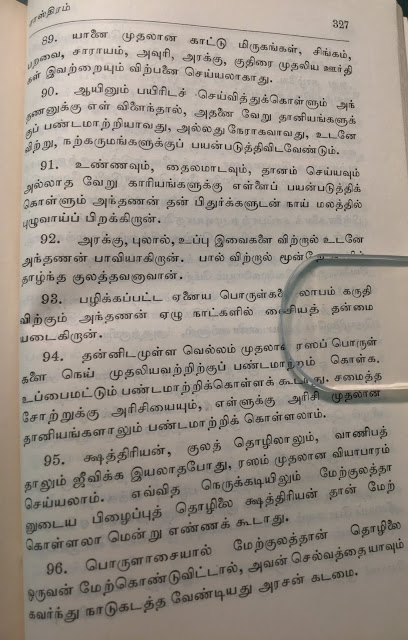 ராஸ்திரம்
327
89. யானை முதலான காட்டு மிருகங்கள், சிங்கம்,
பறவை, சாராயம், அவுரி, அரக்கு, குதிரை முதலிய ஊர்தி
கள் இவற்றையும் விற்பனை செய்யலாகாது.
90. ஆயினும் பயிரிடச் செய்வித்துக்கொள்ளும் அந்
தணனுக்கு எள் விளைந்தால், அதனை வேறு தானியங்களுக்
குப் பண்டமாற்றியாவது, அல்லது நேராகவாவது, உடனே
விற்று, நற்கருமங்களுக்குப் பயன்படுத்திவிடவேண்டும்.
91. உண்ணவும், தைலமாடவும், தானம் செய்யவும்
அல்லாத வேறு காரியங்களுக்கு எள்ளைப் பயன்படுத்திக்
கொள்ளும் அந்தணன் தன் பிதுர்க்களுடன் நாய் மலத்தில்
புழுவாய்ப் பிறக்கிறான்.
92. அரக்கு, புலால், உப்பு இவைகளை விற்றால் உடனே
அந்தணன் பாவியாகிறான். பால் விற்றால் மூன்றே
தாழ்ந்த குலத்தவனாவான்.
93. பழிக்கப்பட்ட ஏனைய பொருள்களை லாபம் கருதி
விற்கும் அந்தணன் ஏழு நாட்களில் வைசியத் தன்மை
யடைகிறான்.
94. தன்னிடமுள்ள வெல்லம் முதலான ரஸப் பொருள்
களை நெய் முதலியவற்றிற்குப் பண்டமாற்றம் கொள்க.
உப்பைமட்டும் பண்டமாற்றிக்கொள்ளக் கூடாது. சமைத்த
சோற்றுக்கு அரிசியையும், எள்ளுக்கு அரிசி முதலான
தானியங்களாலும் பண்டமாற்றிக் கொள்ளலாம்.
95. க்ஷத்திரியன், குலத் தொழிலாலும், வாணிபத்
தாலும் ஜீவிக்க இயலாதபோது, ரஸம் முதலான வியாபாரம்
செய்யலாம். எவ்வித நெருக்கடியிலும் மேற்குலத்தா
னுடைய பிழைப்புத் தொழிலை க்ஷத்திரியன் தான் மேற்
கொள்ளலா மென்று எண்ணக் கூடாது.
96. பொருளாசையால் மேற்குலத்தான் தொழிலை
ஒருவன் மேற்கொண்டுவிட்டால், அவன் செல்வத்தை யாவும்
கவர்ந்து நாடுகடத்த வேண்டியது அரசன் கடமை.